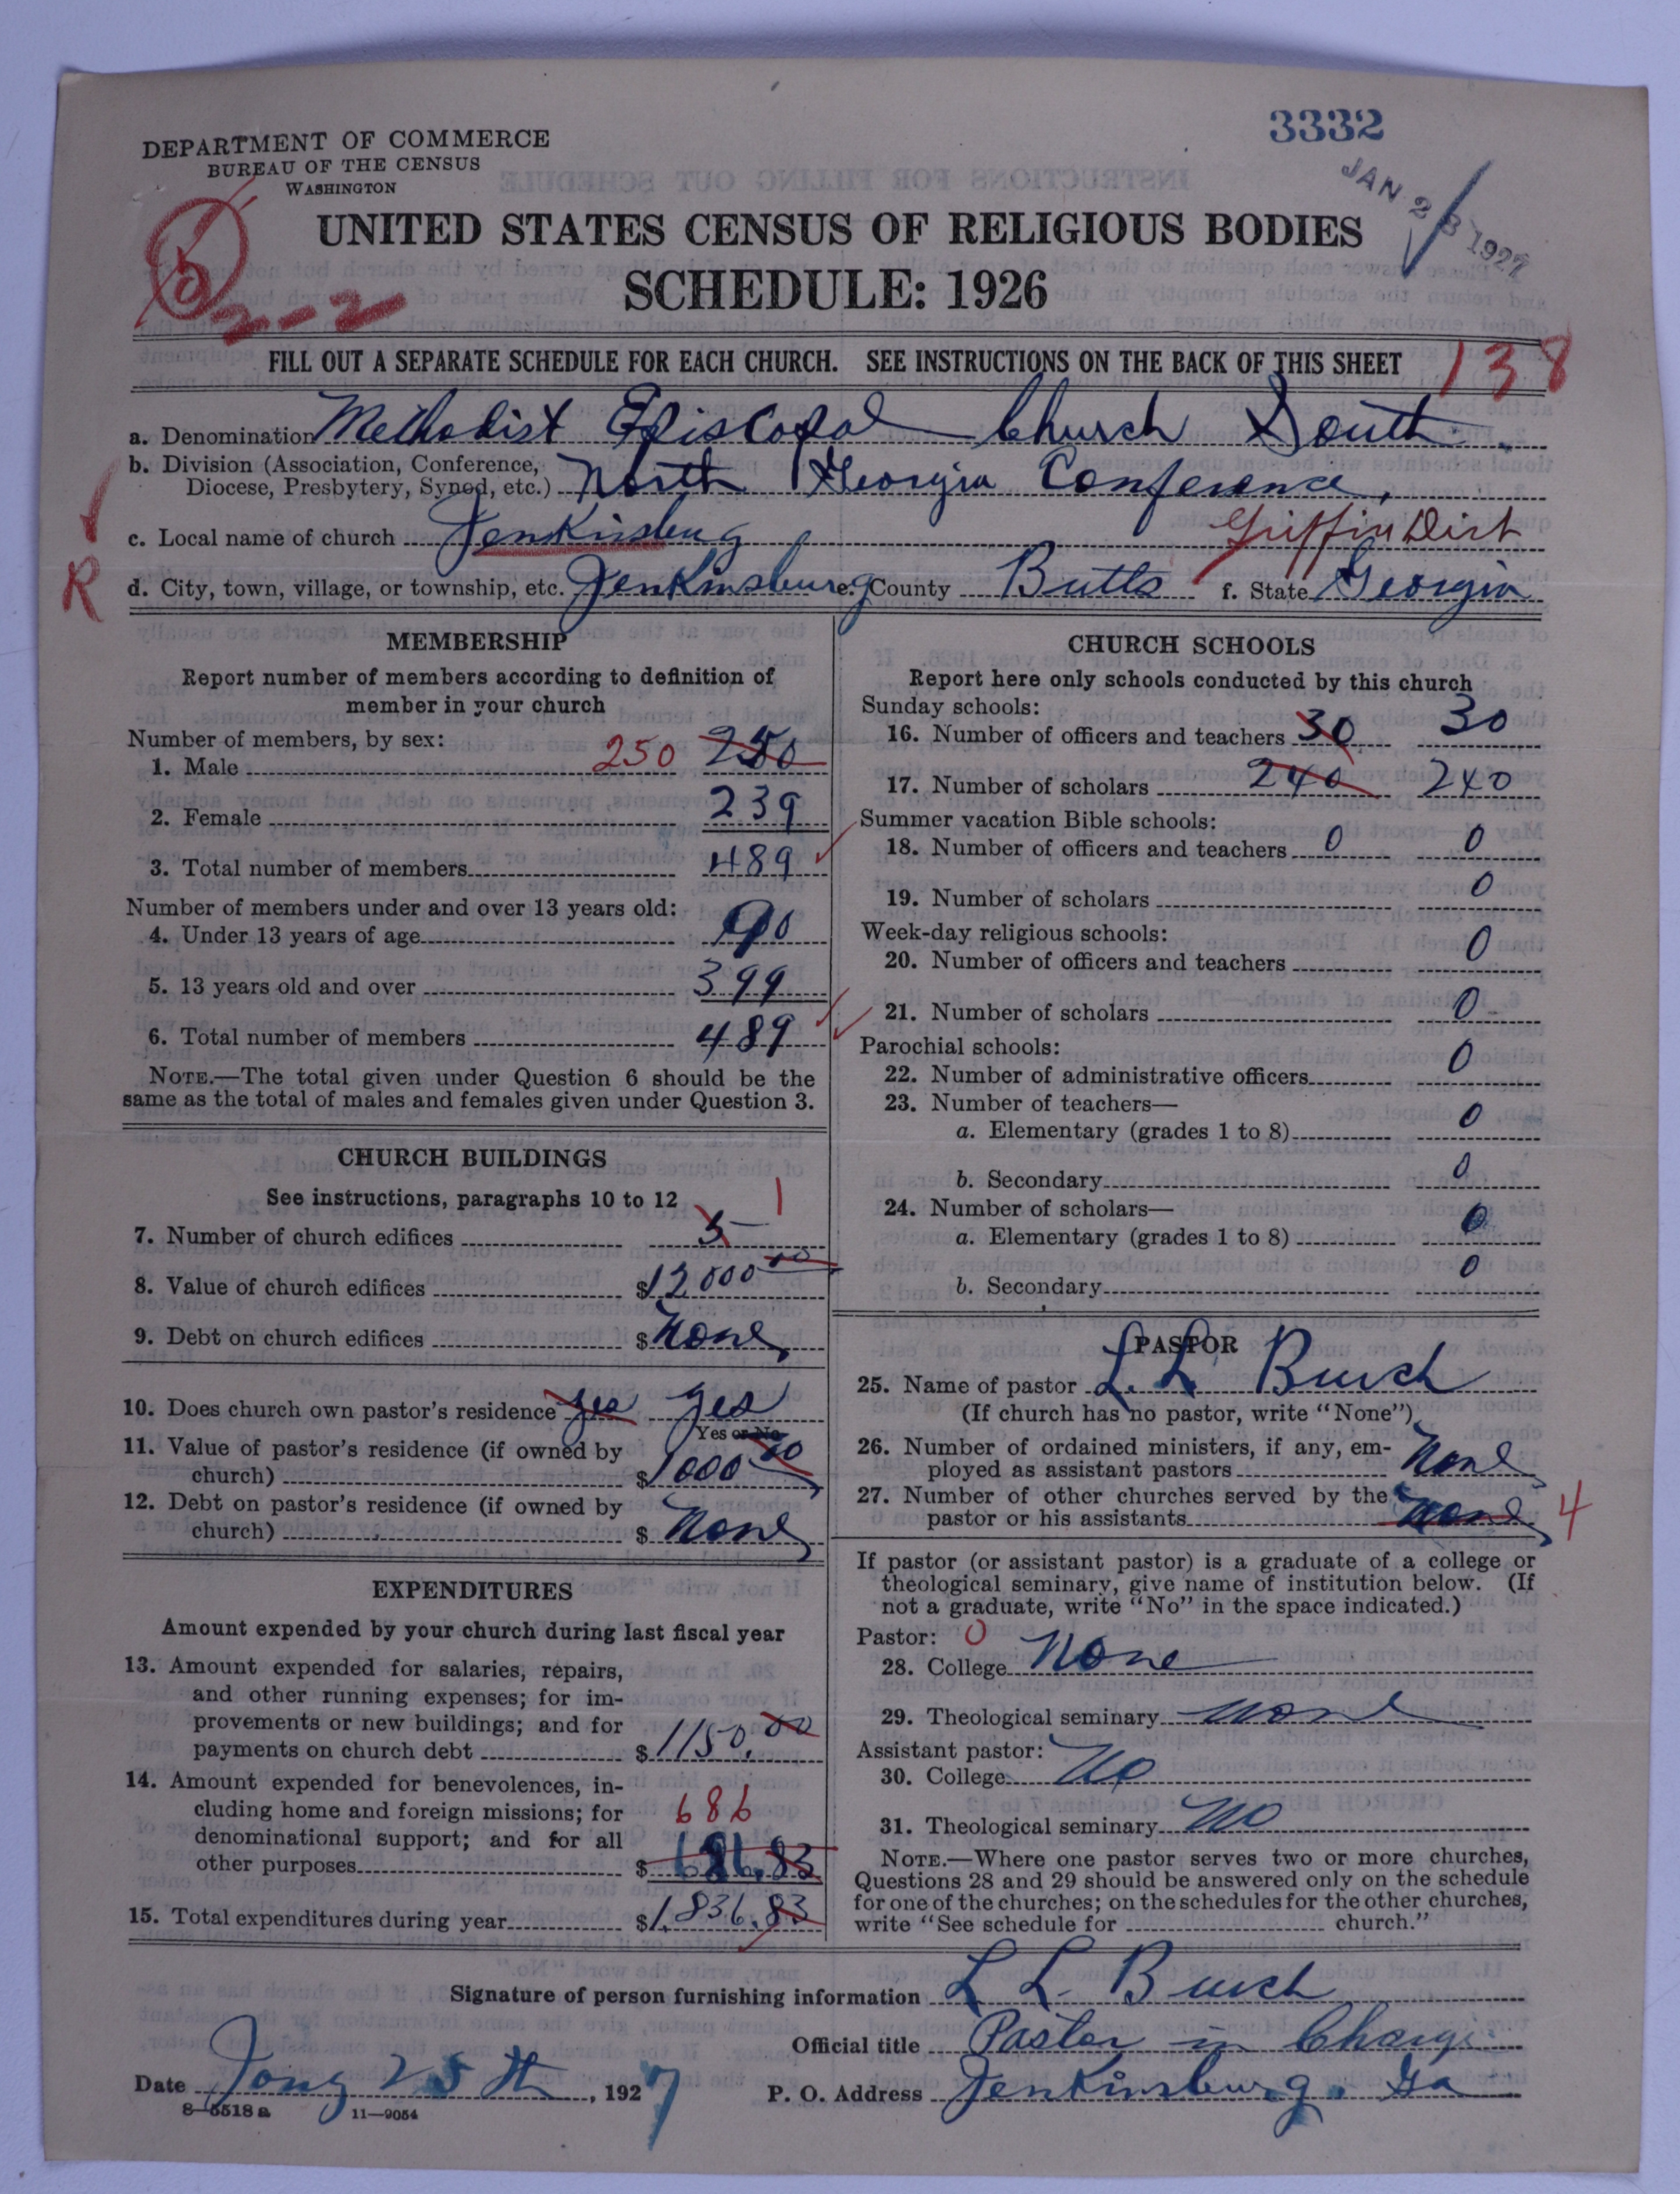 3332
DEPARTMENT OF COMMERCE
BUREAU OF THE CENSUS
WASHINGTON
JAN 28 1927
UNITED STATES CENSUS OF RELIGIOUS BODIES
SCHEDULE: 1926
5
2-2
FILL OUT A SEPARATE SCHEDULE FOR EACH CHURCH. SEE INSTRUCTIONS ON THE BACK OF THIS SHEET 138
a. Denomination Methodist Episcopal Church South.
b. Division (Association, Conference, Diocese, Presbytery, Synod, etc.) North Georgia Conference,
c. Local name of church Jenkinsburg Griffin Dist
R
d. City, town, village, or township, etc. Jenkinsburg e. County Butts f. State Georgia
MEMBERSHIP
Report number of members according to definition of
member in your church
Number of members, by sex:
1. Male 250 250
2. Female 239
3. Total number of members 489
Number of members under and over 13 years old:
4. Under 13 years of age 90
5. 13 years old and over 399
6. Total number of members 489
NOTE.—The total given under Question 6 should be the
same as the total of males and females given under Question 3.
CHURCH BUILDINGS
See instructions, paragraphs 10 to 12
7. Number of church edifices 5 1
8. Value of church edifices $12000 00
9. Debt on church edifices $ None
10. Does church own pastor's residence yes yes
Yes or No
11. Value of pastor's residence (if owned by
church) $1000 00
12. Debt on pastor's residence (if owned by
church) $ None
EXPENDITURES
Amount expended by your church during last fiscal year
13. Amount expended for salaries, repairs,
and other running expenses; for im-
provements or new buildings; and for
payments on church debt $1150.00
14. Amount expended for benevolences, in-
cluding home and foreign missions; for 686
denominational support; and for all
other purposes $ 686.83
15. Total expenditures during year $1,836.83
CHURCH SCHOOLS
Report here only schools conducted by this church
Sunday schools:
16. Number of officers and teachers 30 30
17. Number of scholars 240 240
Summer vacation Bible schools:
18. Number of officers and teachers 0 0
19. Number of scholars 0
Week-day religious schools:
20. Number of officers and teachers 0
21. Number of scholars 0
Parochial schools:
22. Number of administrative officers 0
23. Number of teachers—
a. Elementary (grades 1 to 8) 0
b. Secondary 0
24. Number of scholars—
a. Elementary (grades 1 to 8) 0
b. Secondary 0
PASTOR
25. Name of pastor L. L. Burch
(If church has no pastor, write "None")
26. Number of ordained ministers, if any, em-
ployed as assistant pastors None
27. Number of other churches served by the
pastor or his assistants None 4
If pastor (or assistant pastor) is a graduate of a college or
theological seminary, give name of institution below. (If
not a graduate, write "No" in the space indicated.)
Pastor: 0
28. College None
29. Theological seminary None
Assistant pastor:
30. College No
31. Theological seminary No
NOTE.—Where one pastor serves two or more churches,
Questions 28 and 29 should be answered only on the schedule
for one of the churches; on the schedules for the other churches,
write "See schedule for church."
Signature of person furnishing information L L. Burch
Official title Pastor in Charge
Date Jany 25th, 1927 P. O. Address Jenkinsburg, Ga
8—5518 a 11—9054